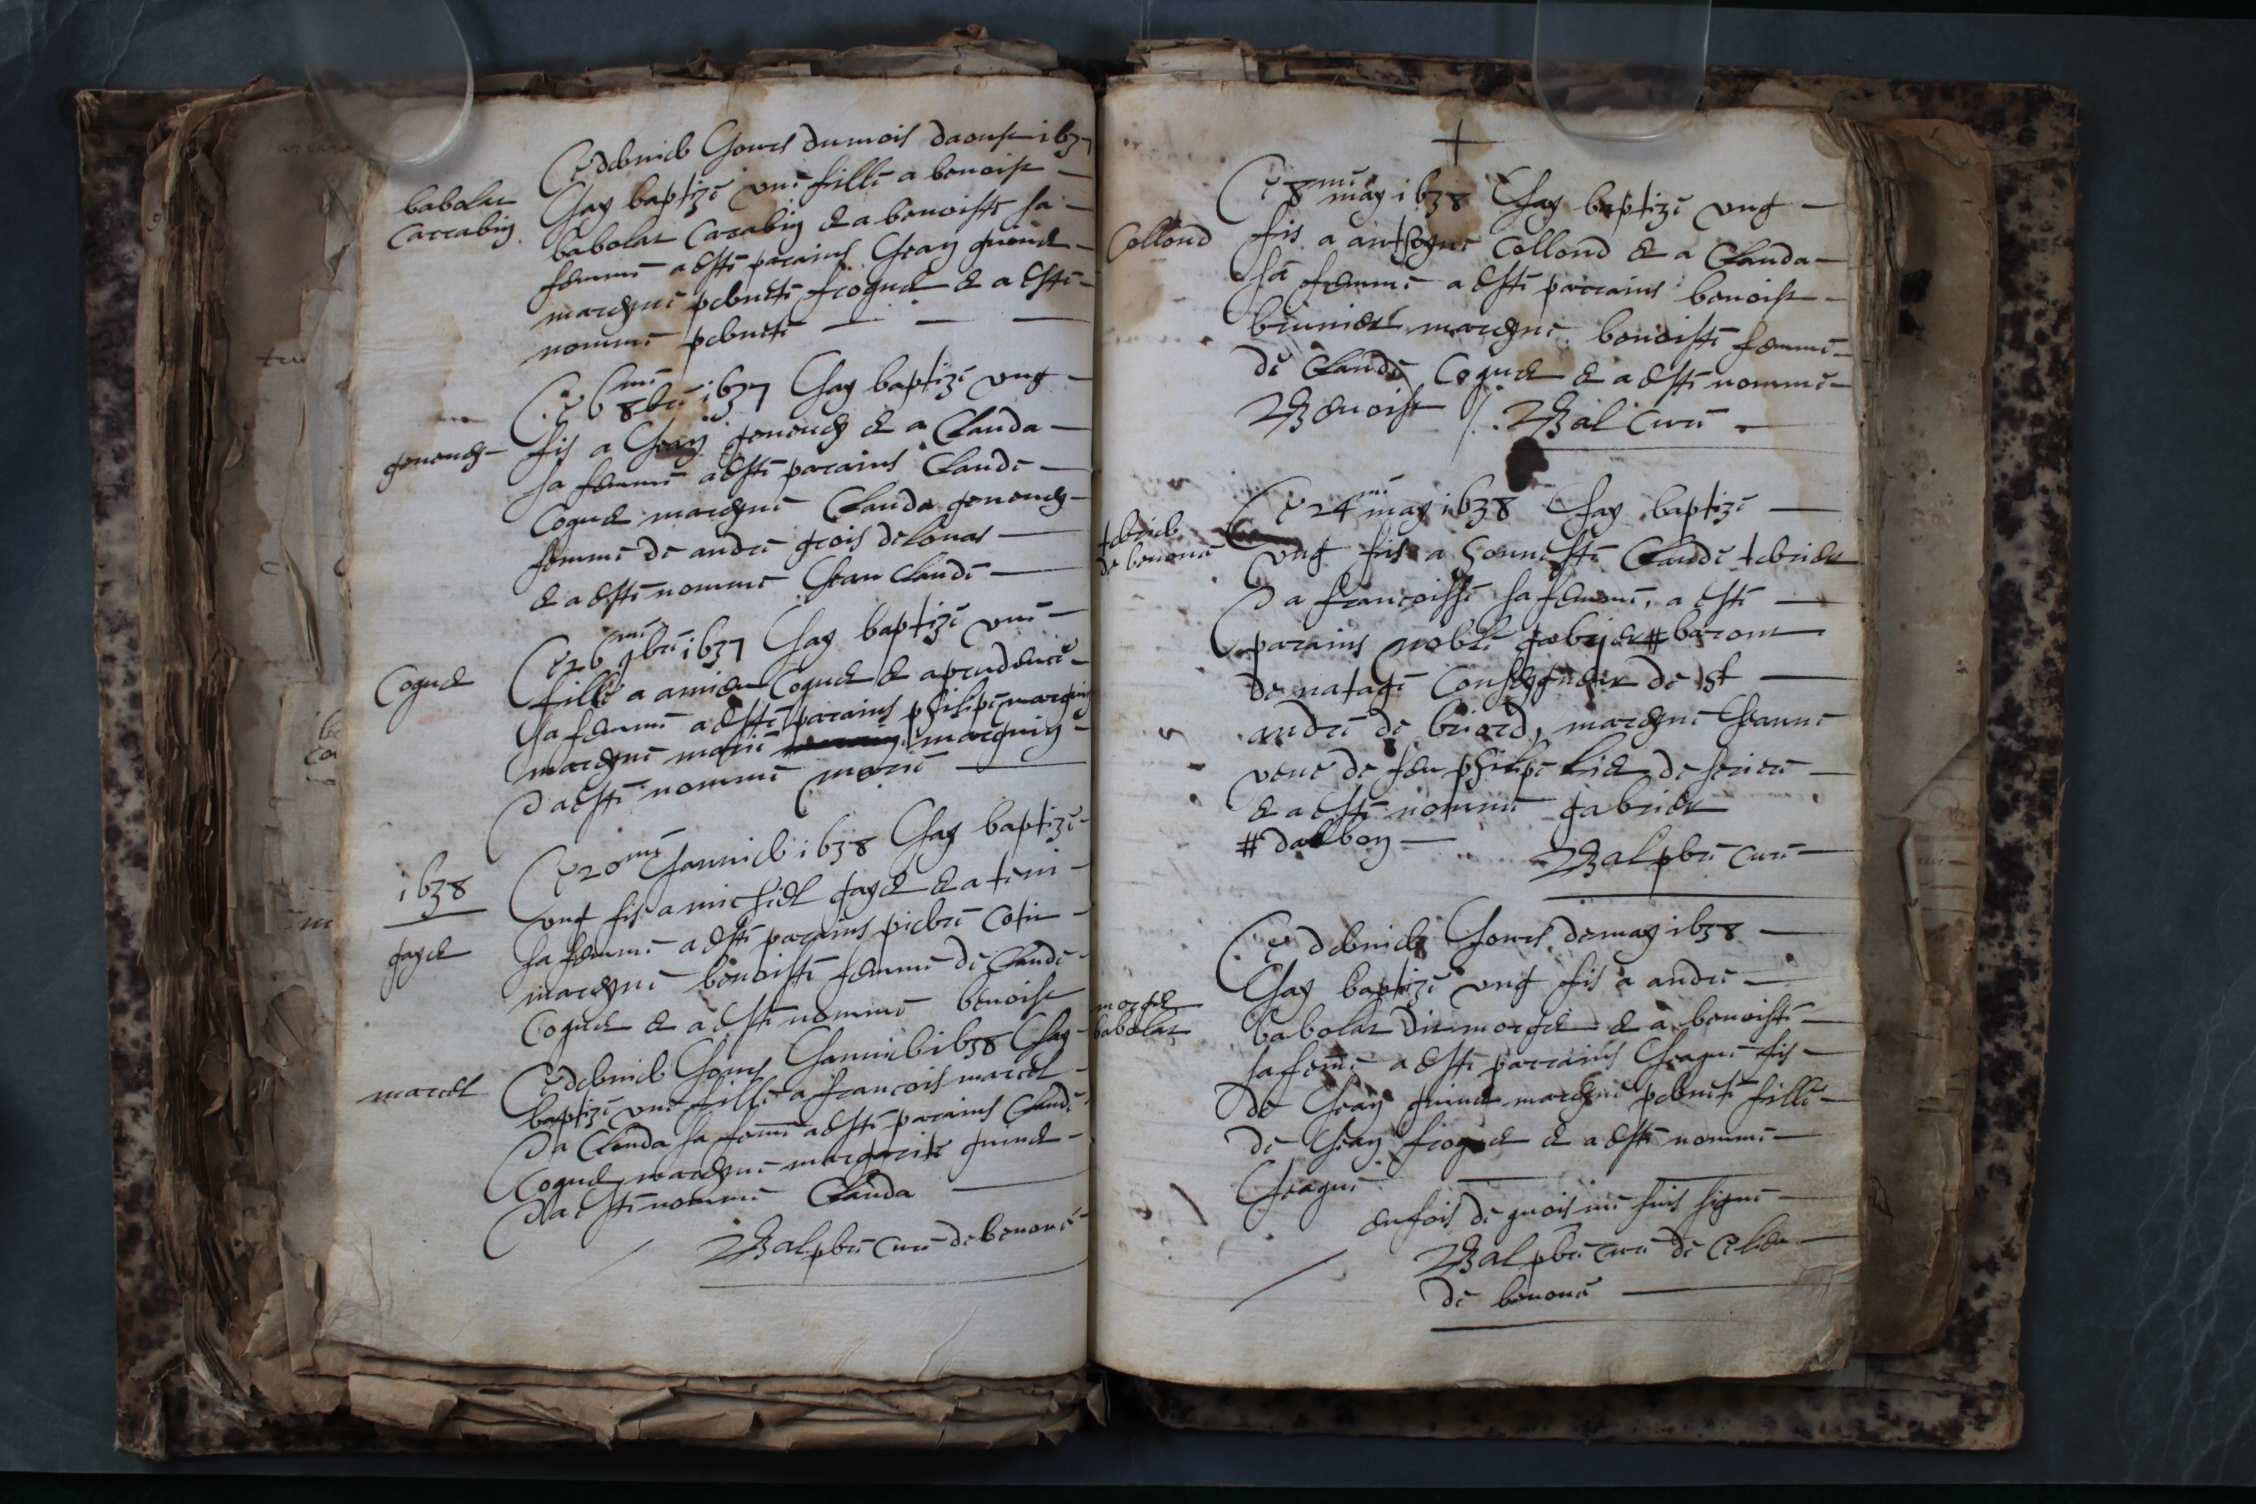 babolat
Carrabin
Ce dernier Jour du mois daoust 1637
Jay baptize une fillie a benoist
babolat Carrabin & a benoiste sa
femme a este parains Jean guinet
marayne pernete froquet & a este
nomme pernete
genendz
Ce 6me 8bre 1637 Jay baptize ung
fis a Jean genendz & a Clauda
sa femme a este parains Claude
Coquet marayne Clauda genendz
femme de andre grois de Lonas
& a este nomme Jean Claude
Coquet
Ce 26me 9bre 1637 Jay baptize une
fillie a amied Coquet & a prudence
sa femme a este parains philipe marquin
marayne marie marquin
& a este nomme marie
1638
Ce 20me Janvier 1638 Jay baptize
gayet
ung fis a michiel gayet & a teni
sa femme a este parains pierre Cotin
marayne benoiste femme de Claude
Coquet & a este nomme benoist
marcel
Ce dernier Jours Janvier 1638 Jay
baptize une fillie a francois marcel
& a Clauda sa feme a este parains Claude
Coquet marayne margarite guinet
& a este nomme Clauda
Bal pbre cure de benone
+
Ce 8me may 1638 Jay baptize ung
Collond
fis a anthoyne Collond & a Clauda
sa femme a este parrains benoist
brunier marayne benoiste femme
de Claude Coquet & a este nomme
Benoist // Bal Cure
terrier
de benone
Ce 24me may 1638 Jay baptize
ung fis a honneste Claude terrier
& a francoisse sa femme, a este
parains noble gabriel # baron
de natage Conseigneur de St
andre de briord, marayne Jeanne
veve de feu philipe de serriere
& a este nomme gabriel
# dalbon
Bal pbre cure
Ce dernier Jours de may 1638
Jay baptize ung fis a andre
morget
babolat
babolat dit morget & a benoiste
sa feme a este parrains Jaque fis
de Jean guinet marayne pernete fillie
de Jean froquet & a este nomme
Jaque
en fois de quois me suis signe
Bal pbre cure de Ce lieu
de benone